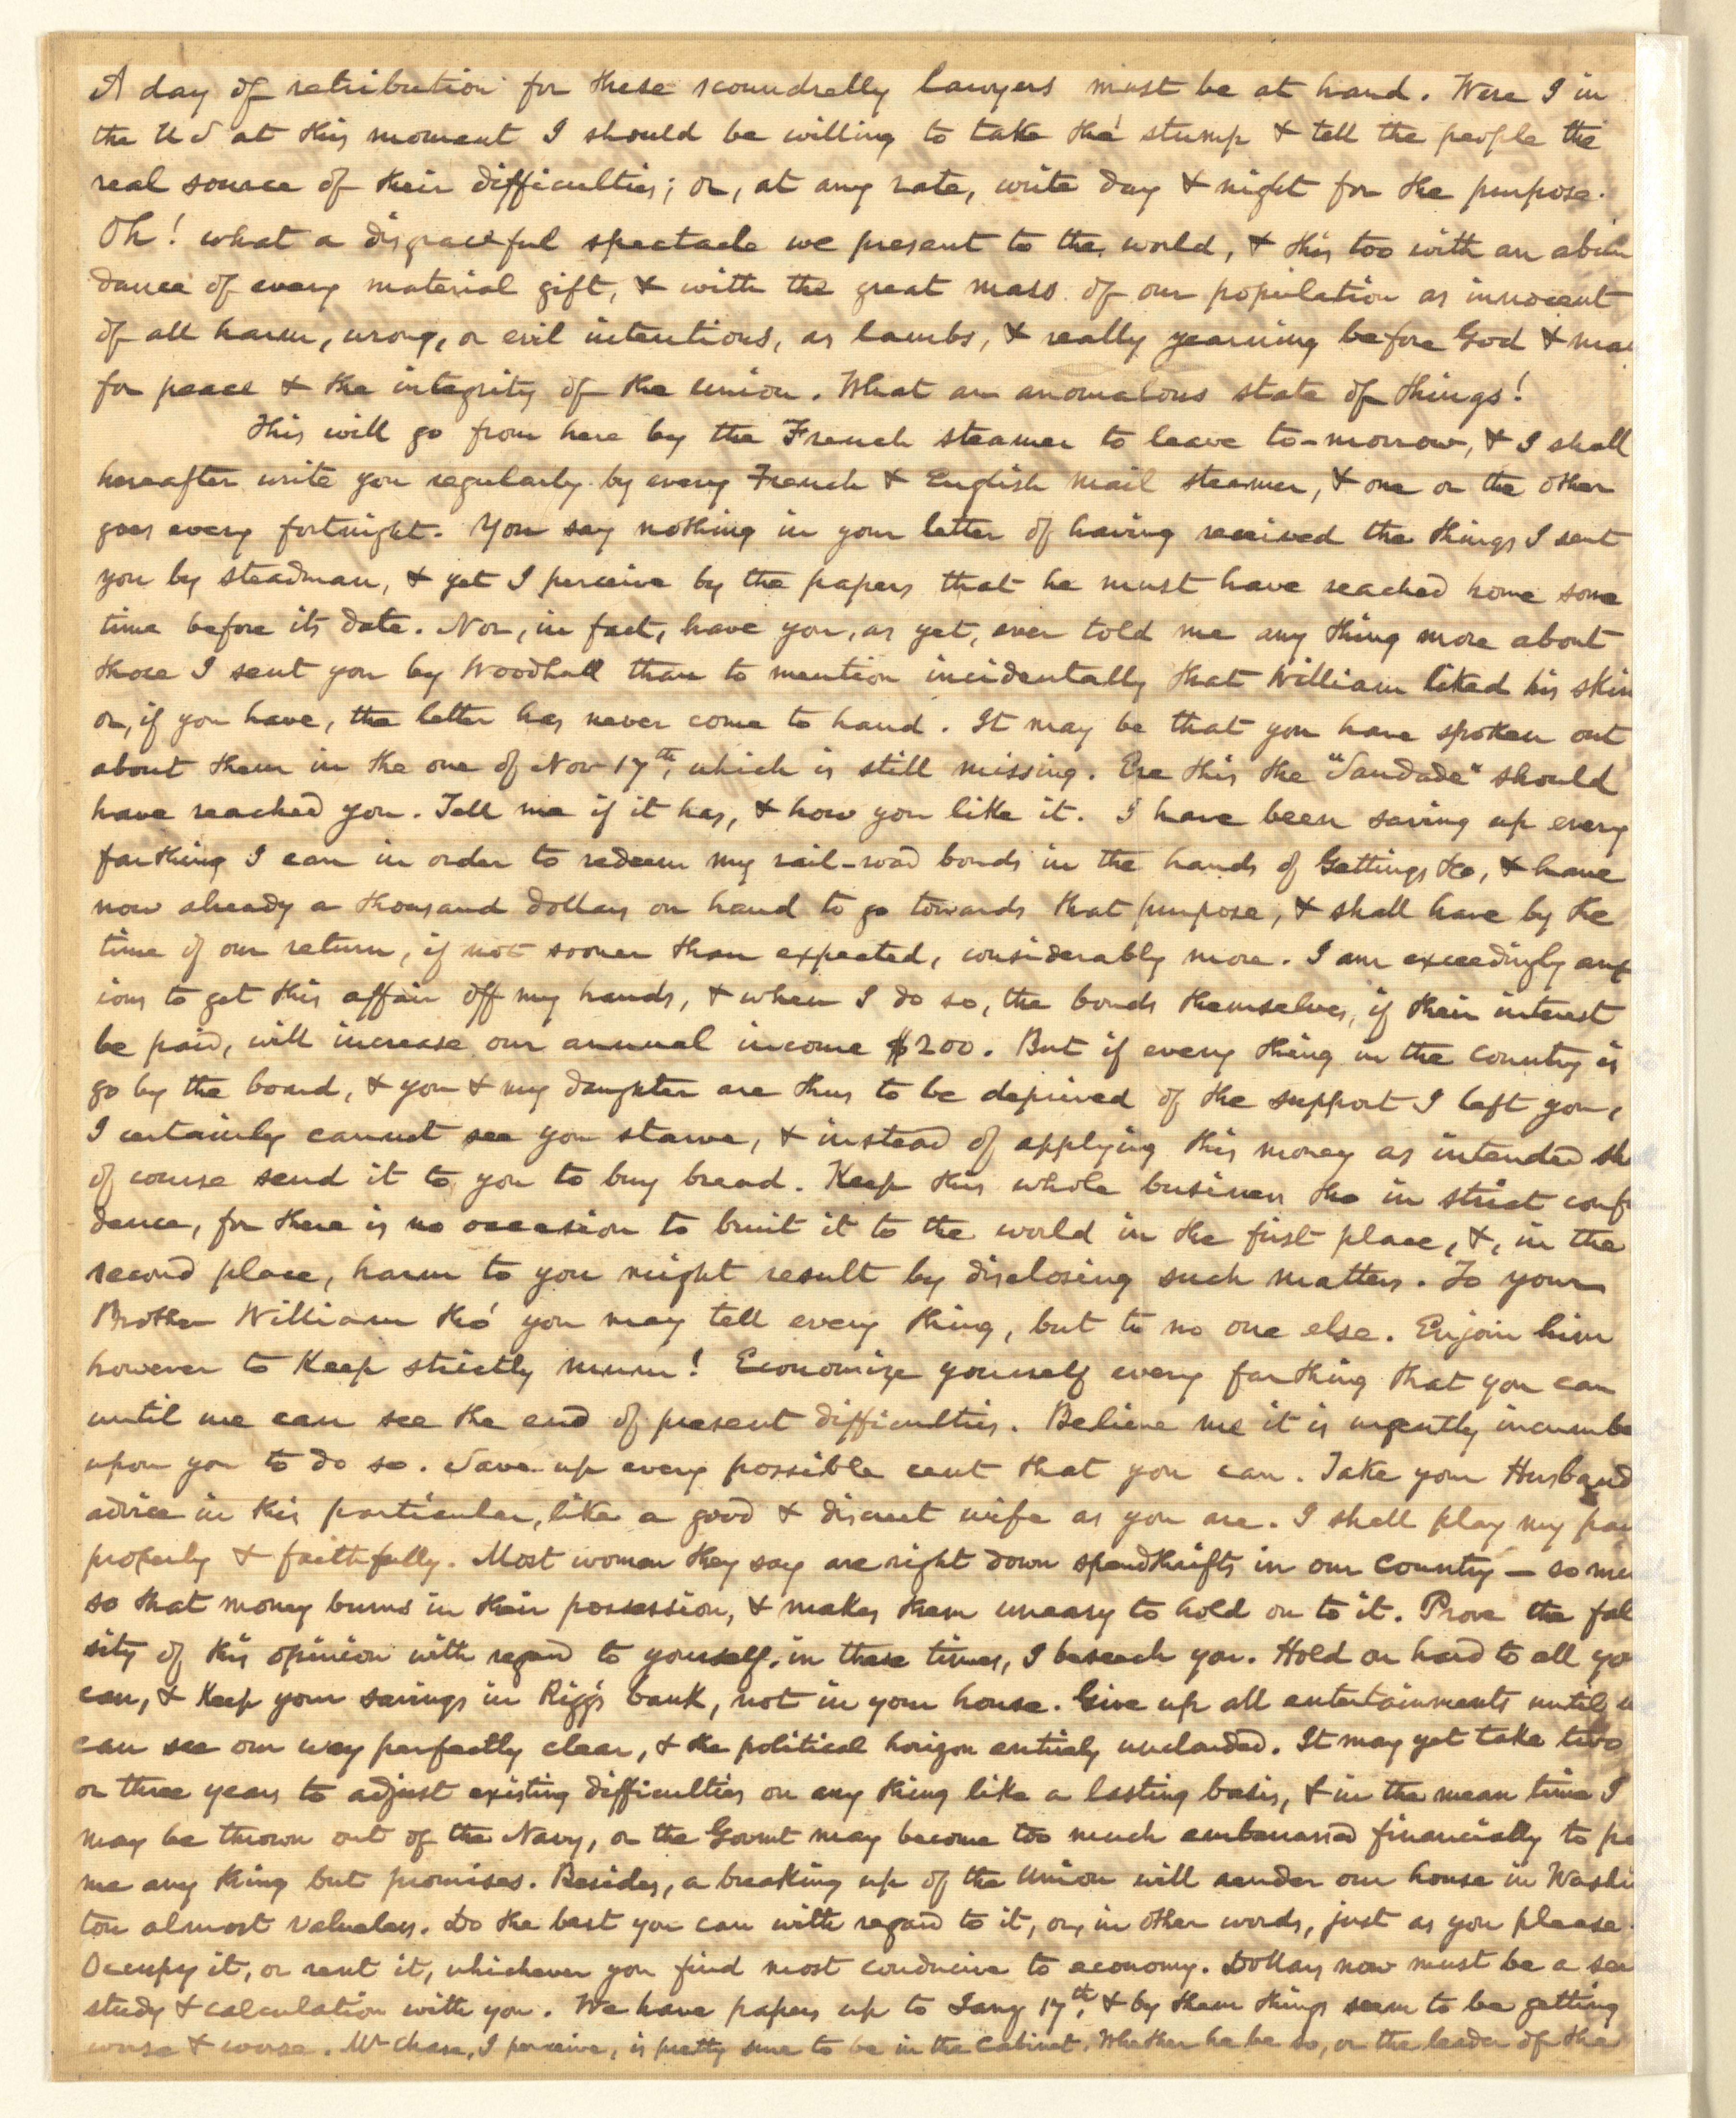 A day of retribution for these scoundrelly lawyers must be at hand. Were I in
the U S at this moment I should be willing to take the stump & tell the people the
real source of their difficulties; or, at any rate, write day & night for the purpose.
Oh! what a disgraceful spectacle we present to the world, & this too with an abun
dance of every material gift, & with the great mass of our population as innocent
of all harm, wrong, or evil intentions, as lambs, & really yearning before God & ma
for peace & the integrity of the union. What an anomalous state of things!
This will go from here by the French steamer to leave to-morrow, & I shall
hereafter write you regularly by every French & English mail steamer, & one or the other
goes every fortnight. You say nothing in your letter of having received the things I sent
you by Steadman, & yet I perceive by the papers that he must have reached home some
time before its date. Nor, in fact, have you, as yet, ever told me any thing more about
those I sent you by Woodhull than to mention incidentally that William liked his skin
or, if you have, the letter has never come to hand. It may be that you have spoken out
about them in the one of Nov 17th, which is still missing. Ere this the "Saudade" should
have reached you. Tell me if it has, & how you like it. I have been saving up every
farthing I can in order to redeem my rail-road bonds in the hands of Gettings &co, & have
now already a thousand dollars on hand to go towards that purpose, & shall have by the
time of our return, if not sooner than expected, considerably more. I am exceedingly anx
ious to get this affair off my hands, & when I do so, the bonds themselves, if their interest
be paid, will increase our annual income $200. But if every thing in the country is
go by the board, & you & my daughter are thus to be deprived of the support I left you,
I certainly cannot see you starve, & instead of applying this money as intended sh
of course send it to you to buy bread. Keep this whole business tho in strict conf
dence, for there is no occasion to bruit it to the world in the first place, &, in the
second place, harm to you might result by disclosing such matters. To your
Brother William tho' you may tell every thing, but to no one else. Enjoin him
however to keep strictly mum! Economize yourself every farthing that you can
until we can see the end of present difficulties. Believe me it is urgently incumbe
upon you to do so. Save up every possible cent that you can. Take your Husband
advice in this particular, like a good & discreet wife as you are. I shall play my par
properly & faithfully. Most women they say are right down spendthrifts in our country — so mu
so that money burns in their possession, & makes them uneasy to hold on to it. Prove the fal
sity of this opinion with regard to yourself, in these times, I beseech you. Hold on hard to all yo
can, & keep your savings in Riggs bank, not in your house. Give up all entertainments until w
can see our way perfectly clear, & the political horizon entirely unclouded. It may yet take two
or three years to adjust existing difficulties on any thing like a lasting basis, & in the mean time I
may be thrown out of the Navy, or the Govmt may become too much embarrassed financially to pa
me any thing but promises. Besides, a breaking up of the Union will render our house in Washi
ton almost valueless. Do the best you can with regard to it, or, in other words, just as you please.
Occupy it, or rent it, whichever you find most conducive to economy. Dollars now must be a
study & calculation with you. We have papers up to Jany 17th, & by them things seem to be getting
worse & worse. Mr Chase, I perceive, is pretty sure to be in the Cabinet. Whether he be so, or the leader of the